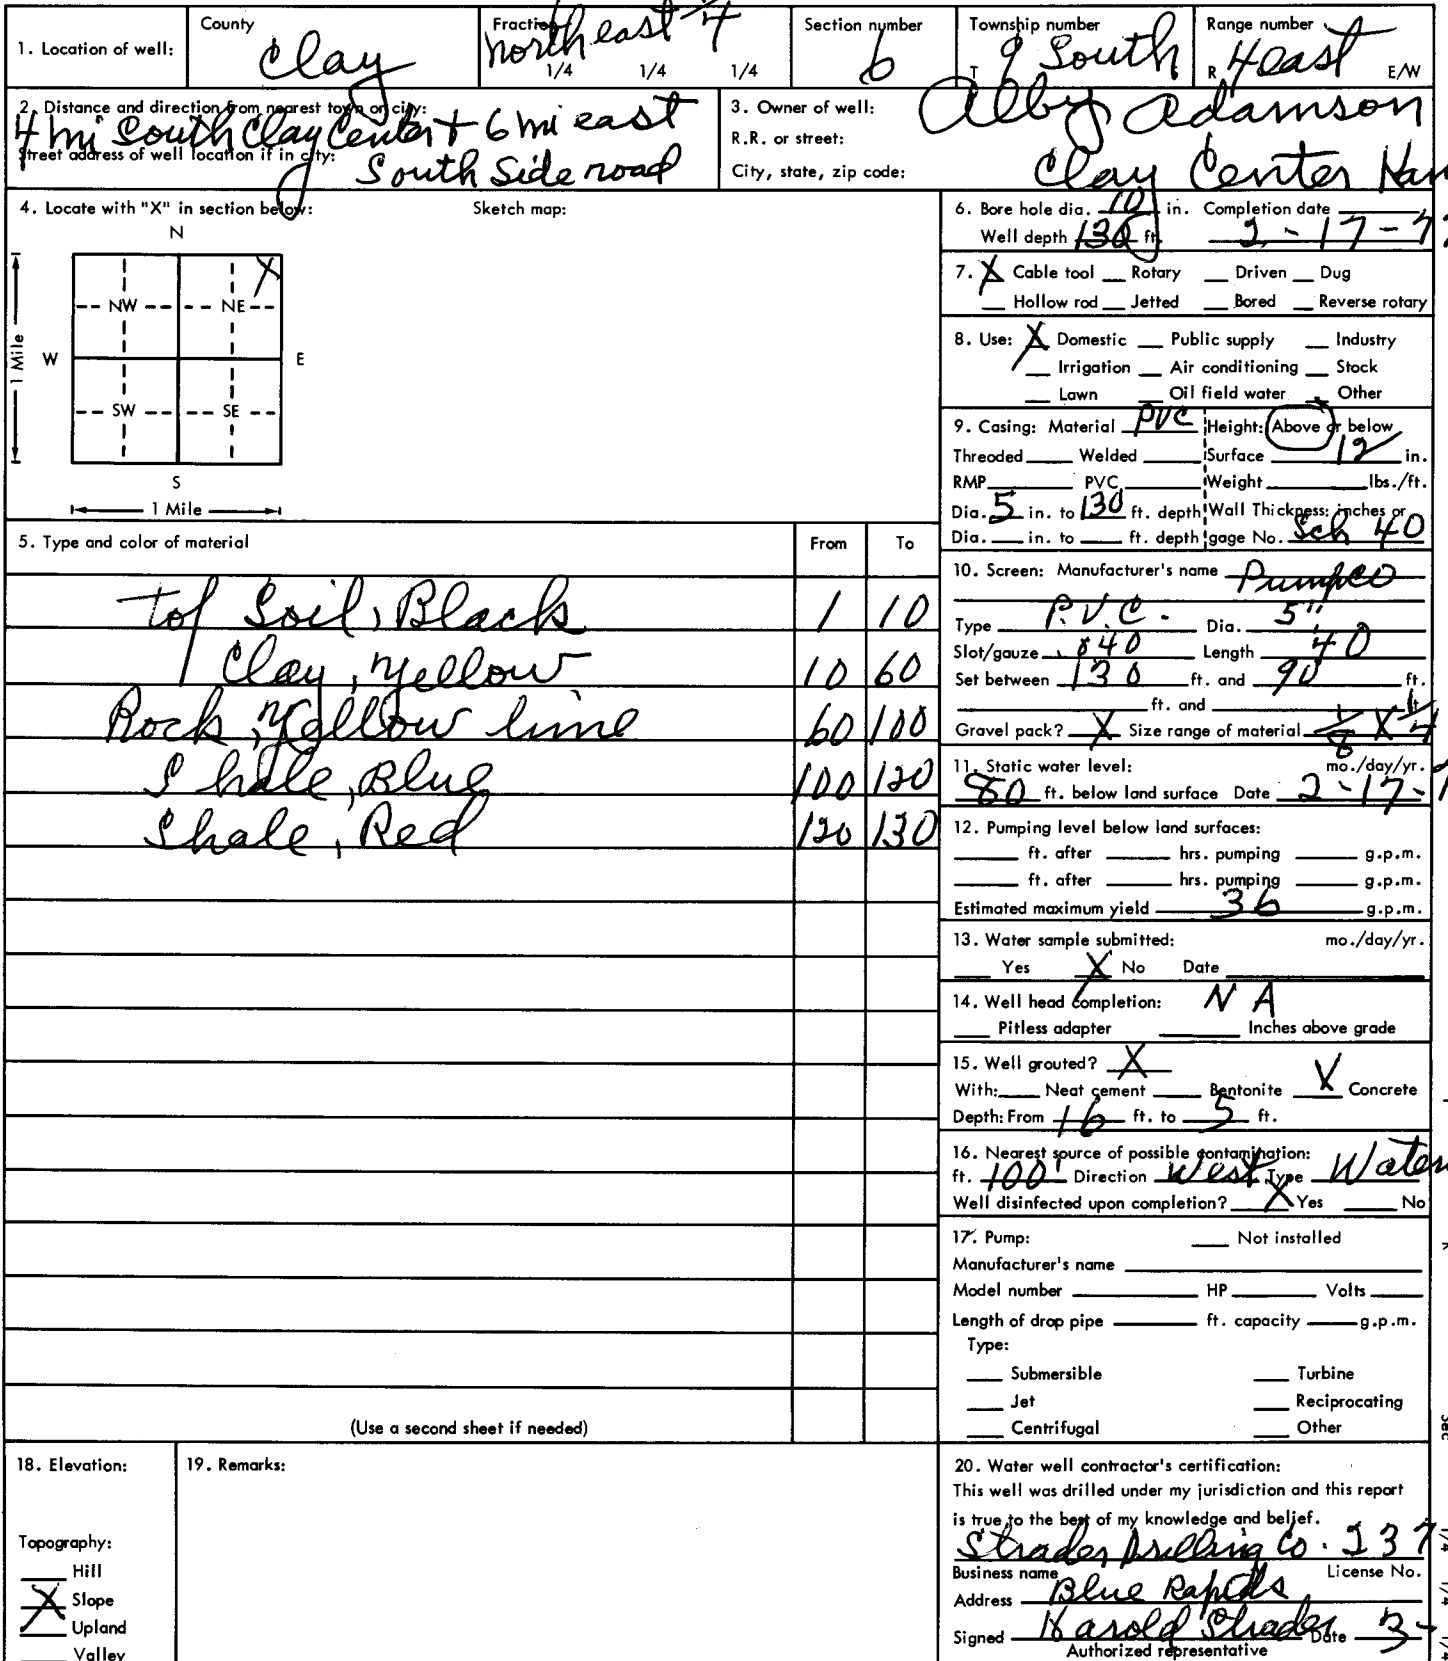 1. Location of well: County Clay Fraction northeast 1/4 1/4 1/4 1/4 Section number 6 Township number T 9 South Range number R 4 east E/W
2. Distance and direction from nearest town or city: 4 mi South Clay Center + 6 mi east
Street address of well location if in city: South Side road
3. Owner of well: Alby Adamson
R.R. or street:
City, state, zip code: Clay Center Kan
4. Locate with "X" in section below: Sketch map:
N
X
NW NE
1 Mile W E
SW SE
S
1 Mile
5. Type and color of material From To
top Soil, Black 1 10
Clay, yellow 10 60
Rock, yellow lime 60 100
Shale, Blue 100 120
Shale, Red 120 130
(Use a second sheet if needed)
6. Bore hole dia. 10 in. Completion date
Well depth 130 ft. 2-17-7
7. X Cable tool __ Rotary __ Driven __ Dug
__ Hollow rod __ Jetted __ Bored __ Reverse rotary
8. Use: X Domestic __ Public supply __ Industry
__ Irrigation __ Air conditioning __ Stock
__ Lawn __ Oil field water __ Other
9. Casing: Material PVC Height: Above or below
Threaded ___ Welded ___ Surface 12 in.
RMP ___ PVC ___ Weight ___ lbs./ft.
Dia. 5 in. to 130 ft. depth Wall Thickness: inches or
Dia. __ in. to __ ft. depth gage No. Sch 40
10. Screen: Manufacturer's name Pumpco
Type P.V.C. Dia. 5"
Slot/gauze 40 Length 40
Set between 130 ft. and 90 ft.
___ ft. and ___ ft.
Gravel pack? X Size range of material 1/8 X 1/4
11. Static water level: mo./day/yr.
80 ft. below land surface Date 2-17-
12. Pumping level below land surfaces:
___ ft. after ___ hrs. pumping ___ g.p.m.
___ ft. after ___ hrs. pumping ___ g.p.m.
Estimated maximum yield 36 g.p.m.
13. Water sample submitted: mo./day/yr.
__ Yes X No Date ___
14. Well head completion: N A
__ Pitless adapter ___ Inches above grade
15. Well grouted? X
With: __ Neat cement __ Bentonite X Concrete
Depth: From 16 ft. to 5 ft.
16. Nearest source of possible contamination:
ft. 100' Direction West Type Water
Well disinfected upon completion? X Yes __ No
17. Pump: __ Not installed
Manufacturer's name ___
Model number ___ HP ___ Volts ___
Length of drop pipe ___ ft. capacity ___ g.p.m.
Type:
__ Submersible __ Turbine
__ Jet __ Reciprocating
__ Centrifugal __ Other
18. Elevation:
Topography:
__ Hill
X Slope
__ Upland
__ Valley
19. Remarks:
20. Water well contractor's certification:
This well was drilled under my jurisdiction and this report
is true to the best of my knowledge and belief.
Strader Drilling Co. 237
Business name License No.
Address Blue Rapids
Signed Harold Strader Date 3-
Authorized representative